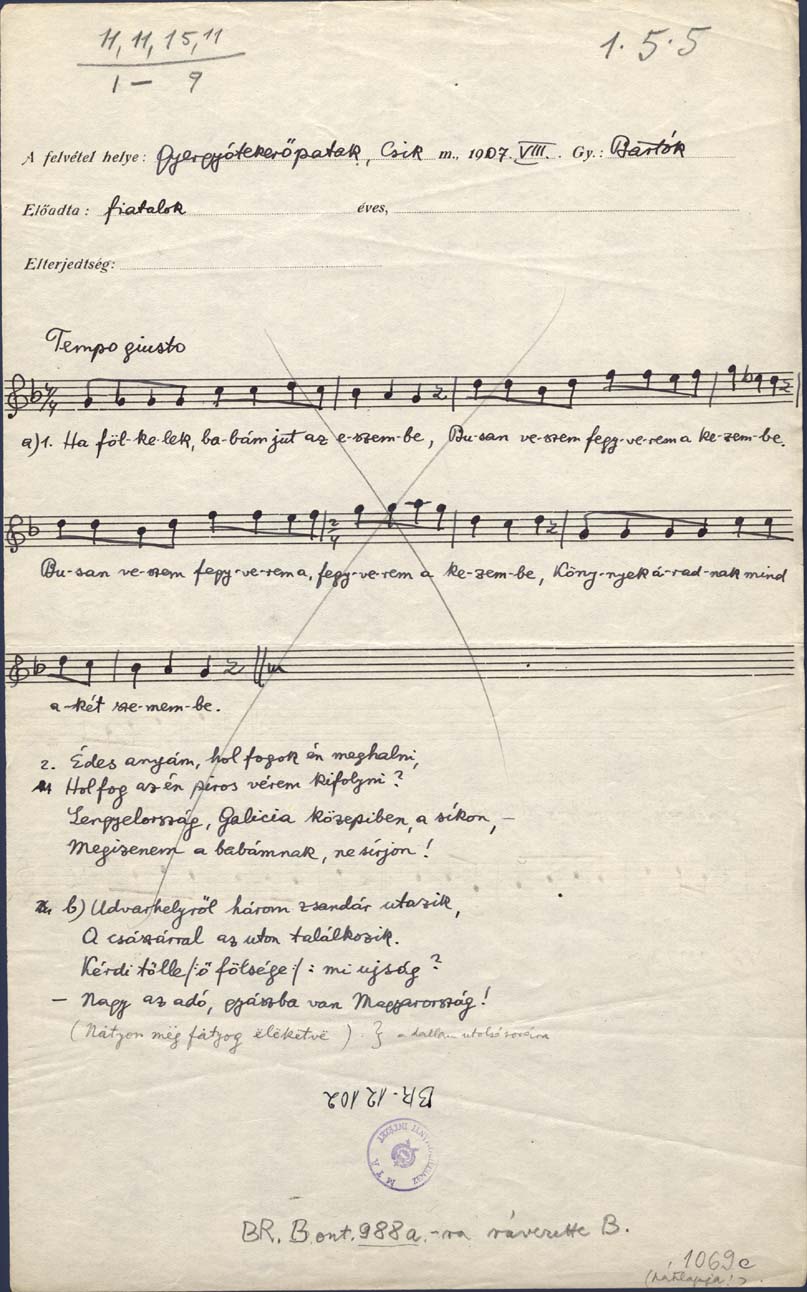 11, 11, 15, 11
1 — 9
1. 5. 5
A felvétel helye: Gyergyótekerőpatak, Csik m., 1907. VIII. Gy.: Bartók
Előadta: fiatalok éves,
Elterjedtség:
Tempo giusto
a) 1. Ha föl-ke-lek, ba-bám jut az e-szem-be, Bu-san ve-szem fegy-ve-rem a ke-zem-be.
Bu-san ve-szem fegy-ve-rem a, fegy-ve-rem a ke-zem-be, Köny-nyek á-rad-nak mind
a-két sze-mem-be.
2. Édes anyám, hol fogok én meghalni,
Hol fog az én piros vérem kifolyni?
Lengyelország, Galicia közepiben, a síkon, –
Megizenem a babámnak, ne sírjon!
b) Udvarhelyről három zsandár utazik,
A császárral az uton találkozik.
Kérdi tőlle /: ő fölsége :/ : mi ujság?
– Nagy az adó, gyászba van Magyarország!
(Nátyon még fátyog élékëtvë) } a dallam utolsó sorára
BR-12102
MTA
BR. B ont. 988a.-ra rávezette B.
1069c
(hátlapja!)